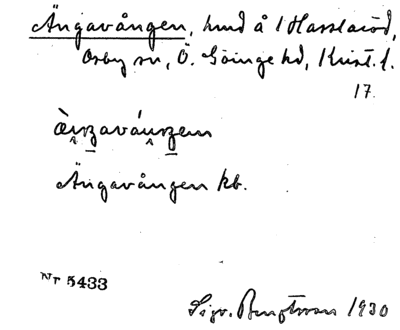 Ängavången, hmd å 1 Hasslaröd,
Osby sn, Ö. Göinge hd, Krist. l.
17.
Ängavången kb.
Nr 5433
Sigv. Bengtsson 1930